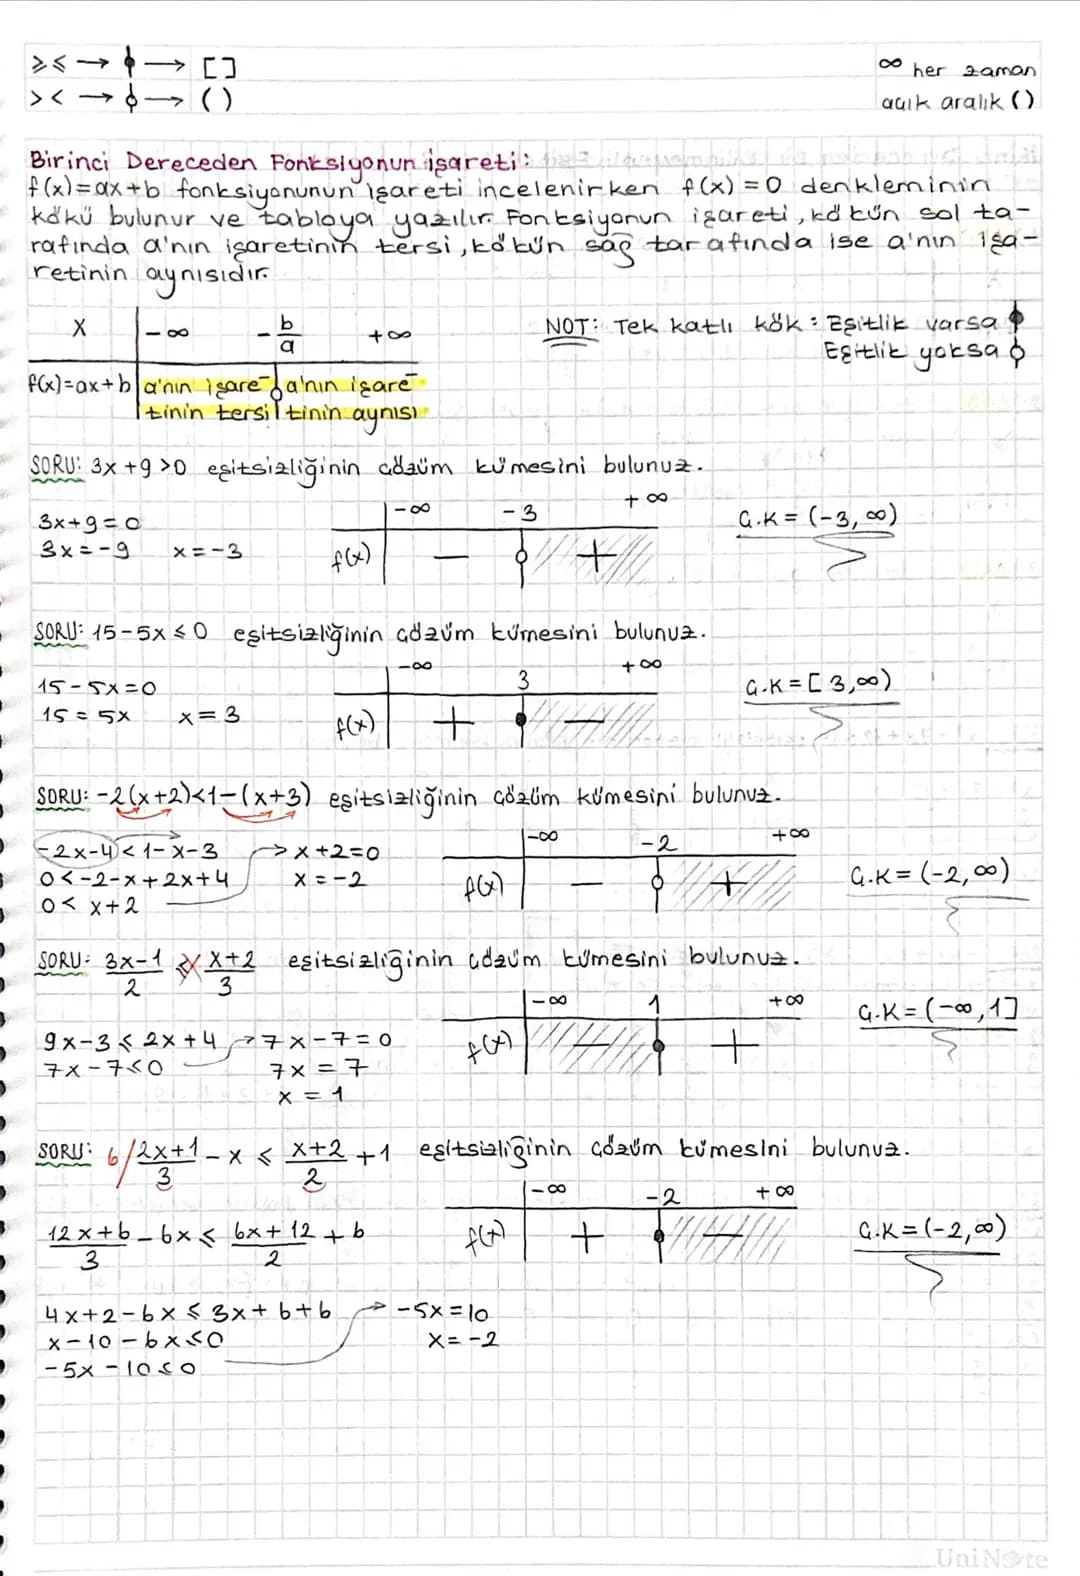 ≥≤ → ⏀ → [ ]
>< → ⏀ → ( )
∞ her zaman
açık aralık ( )
Birinci Dereceden Fonksiyonun işareti:
f(x)=ax+b fonksiyonunun işareti incelenirken f(x)=0 denkleminin
kökü bulunur ve tabloya yazılır. Fonksiyonun işareti, kökün sol ta-
rafında a'nın işaretinin tersi, kökün sağ tarafında ise a'nın işa-
retinin aynısıdır.
x -∞ -b/a +∞
f(x)=ax+b a'nın işare- a'nın işare-
tinin tersi tinin aynısı
NOT: Tek katlı kök: Eşitlik varsa
Eşitlik yoksa
SORU: 3x+9>0 eşitsizliğinin çözüm kümesini bulunuz.
3x+9=0
3x=-9 x=-3
-∞ -3 +∞
f(x) - +
Ç.K=(-3,∞)
SORU: 15-5x≤0 eşitsizliğinin çözüm kümesini bulunuz.
15-5x=0
15=5x x=3
-∞ 3 +∞
f(x) + -
Ç.K=[3,∞)
SORU: -2(x+2)<1-(x+3) eşitsizliğinin çözüm kümesini bulunuz.
-2x-4<1-x-3 → x+2=0
0<-2-x+2x+4 x=-2
0<x+2
-∞ -2 +∞
f(x) - +
Ç.K=(-2,∞)
SORU: 3x-1/2 ≤ x+2/3 eşitsizliğinin çözüm kümesini bulunuz.
9x-3≤2x+4 → 7x-7=0
7x-7≤0 7x=7
x=1
-∞ 1 +∞
f(x) - +
Ç.K=(-∞,1]
SORU: 6/ 2x+1/3 - x ≤ x+2/2 +1 eşitsizliğinin çözüm kümesini bulunuz.
12x+6/3 - 6x ≤ 6x+12/2 + 6
4x+2-6x≤3x+6+6 → -5x=10
x-10-6x≤0 x=-2
-5x-10≤0
-∞ -2 +∞
f(x) + -
Ç.K=(-2,∞)
UniNote